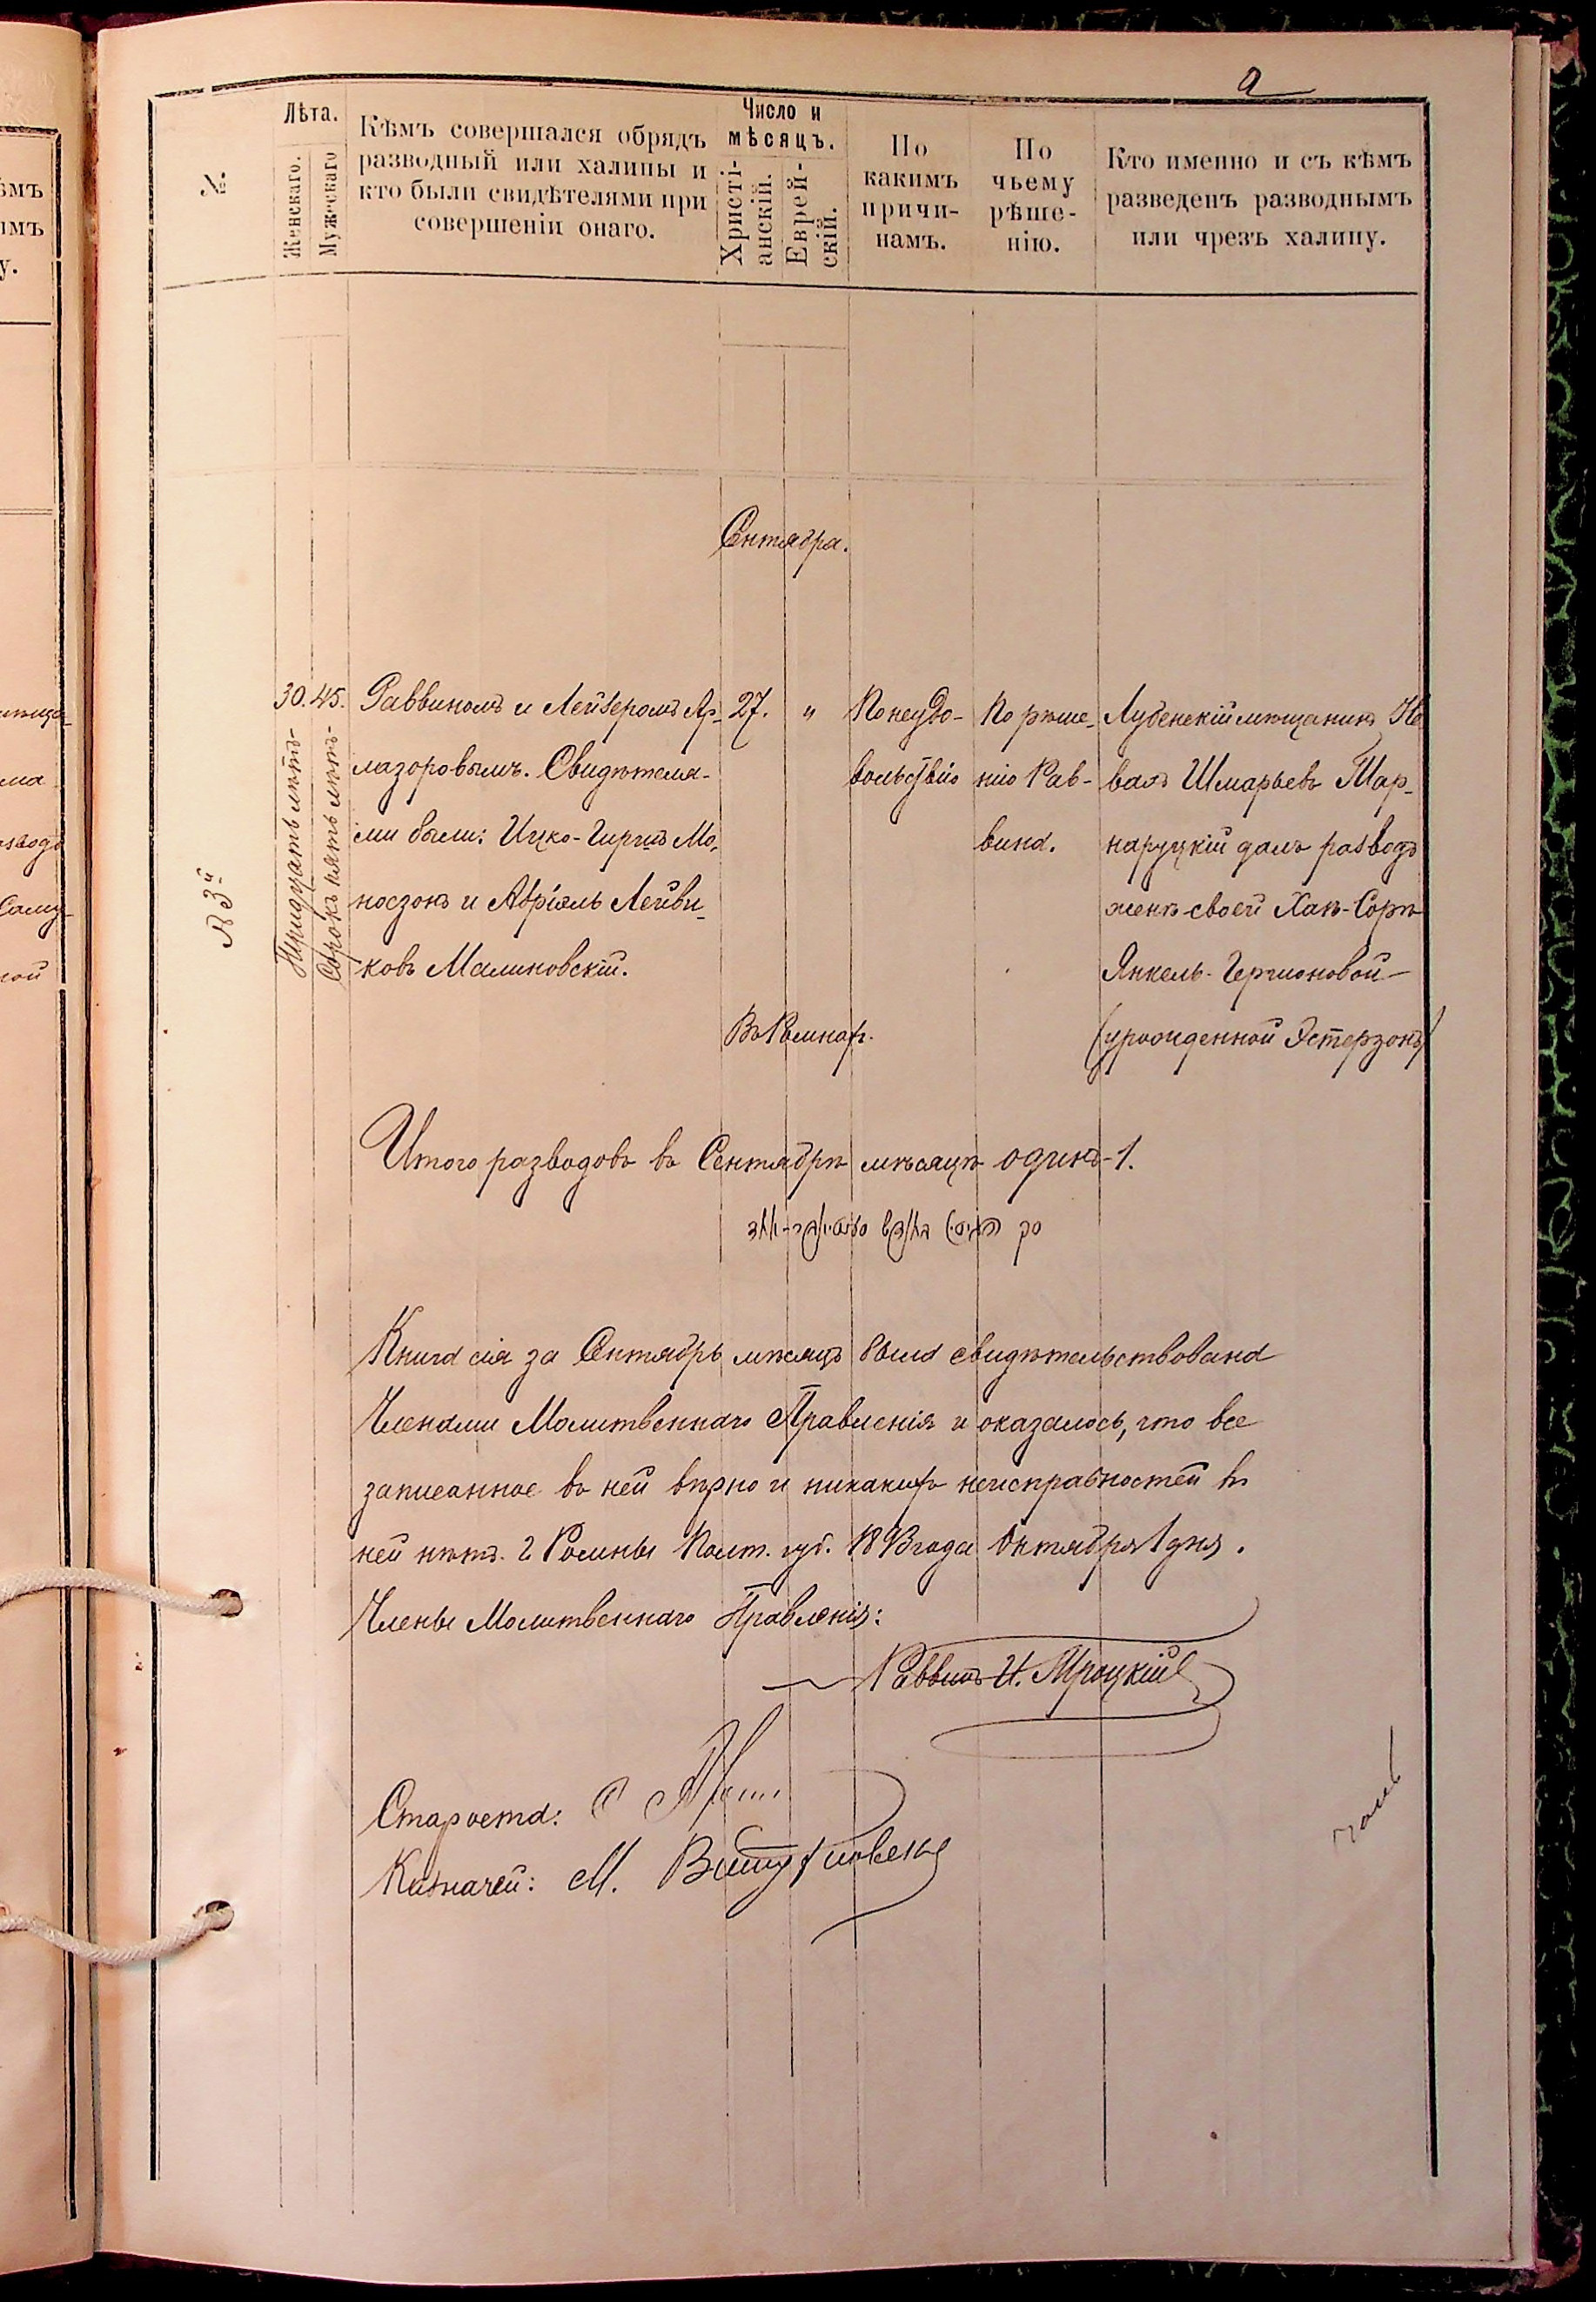 №
Лѣта.
Женскаго.
Мужескаго
Кѣмъ совершался обрядъ
разводный или халицы и
кто были свидѣтелями при
совершеніи онаго.
Число и
мѣсяцъ.
Христі-
анскій.
Еврей-
скій.
По
какимъ
причи-
намъ.
По
чьему
рѣше-
нію.
Кто именно и съ кѣмъ
разведенъ разводнымъ
или чрезъ халицу.
Сентября.
№ 3й
30. 45.
Тридцать лѣтъ-
Сорокъ пять лѣтъ-
Раввиномъ и Лейзеромъ Ар-
лазоровымъ. Свидѣтеля-
ми были: Ицко-Гиршъ Мо-
носзонъ и Абріяль Лейви-
ковъ Малиновскій.
27. "
Въ Ромнахъ.
По неудо-
вольствію
По рѣше-
нію Рав-
вина.
Лубенскій мѣщанинъ Не
вахъ Шмарьевъ Тар-
наруцкій далъ разводъ
женѣ своей Хаѣ-Сорѣ
Янкель-Гершоновой
(урожденной Эстерзонъ)
Итого разводовъ въ Сентябрѣ мѣсяцѣ одинъ-1.
Книга сія за Сентябрь мѣсяцъ была свидѣтельствована
Членами Молитвеннаго Правленія и оказалось, что все
записанное въ ней вѣрно и никакихъ неисправностей въ
ней нѣтъ. г Ромны Полт. губ. 1893 года Октября 1 дня.
Члены Молитвеннаго Правленія:
Раввинъ И. Троцкій
Староста:
Казначей: М.